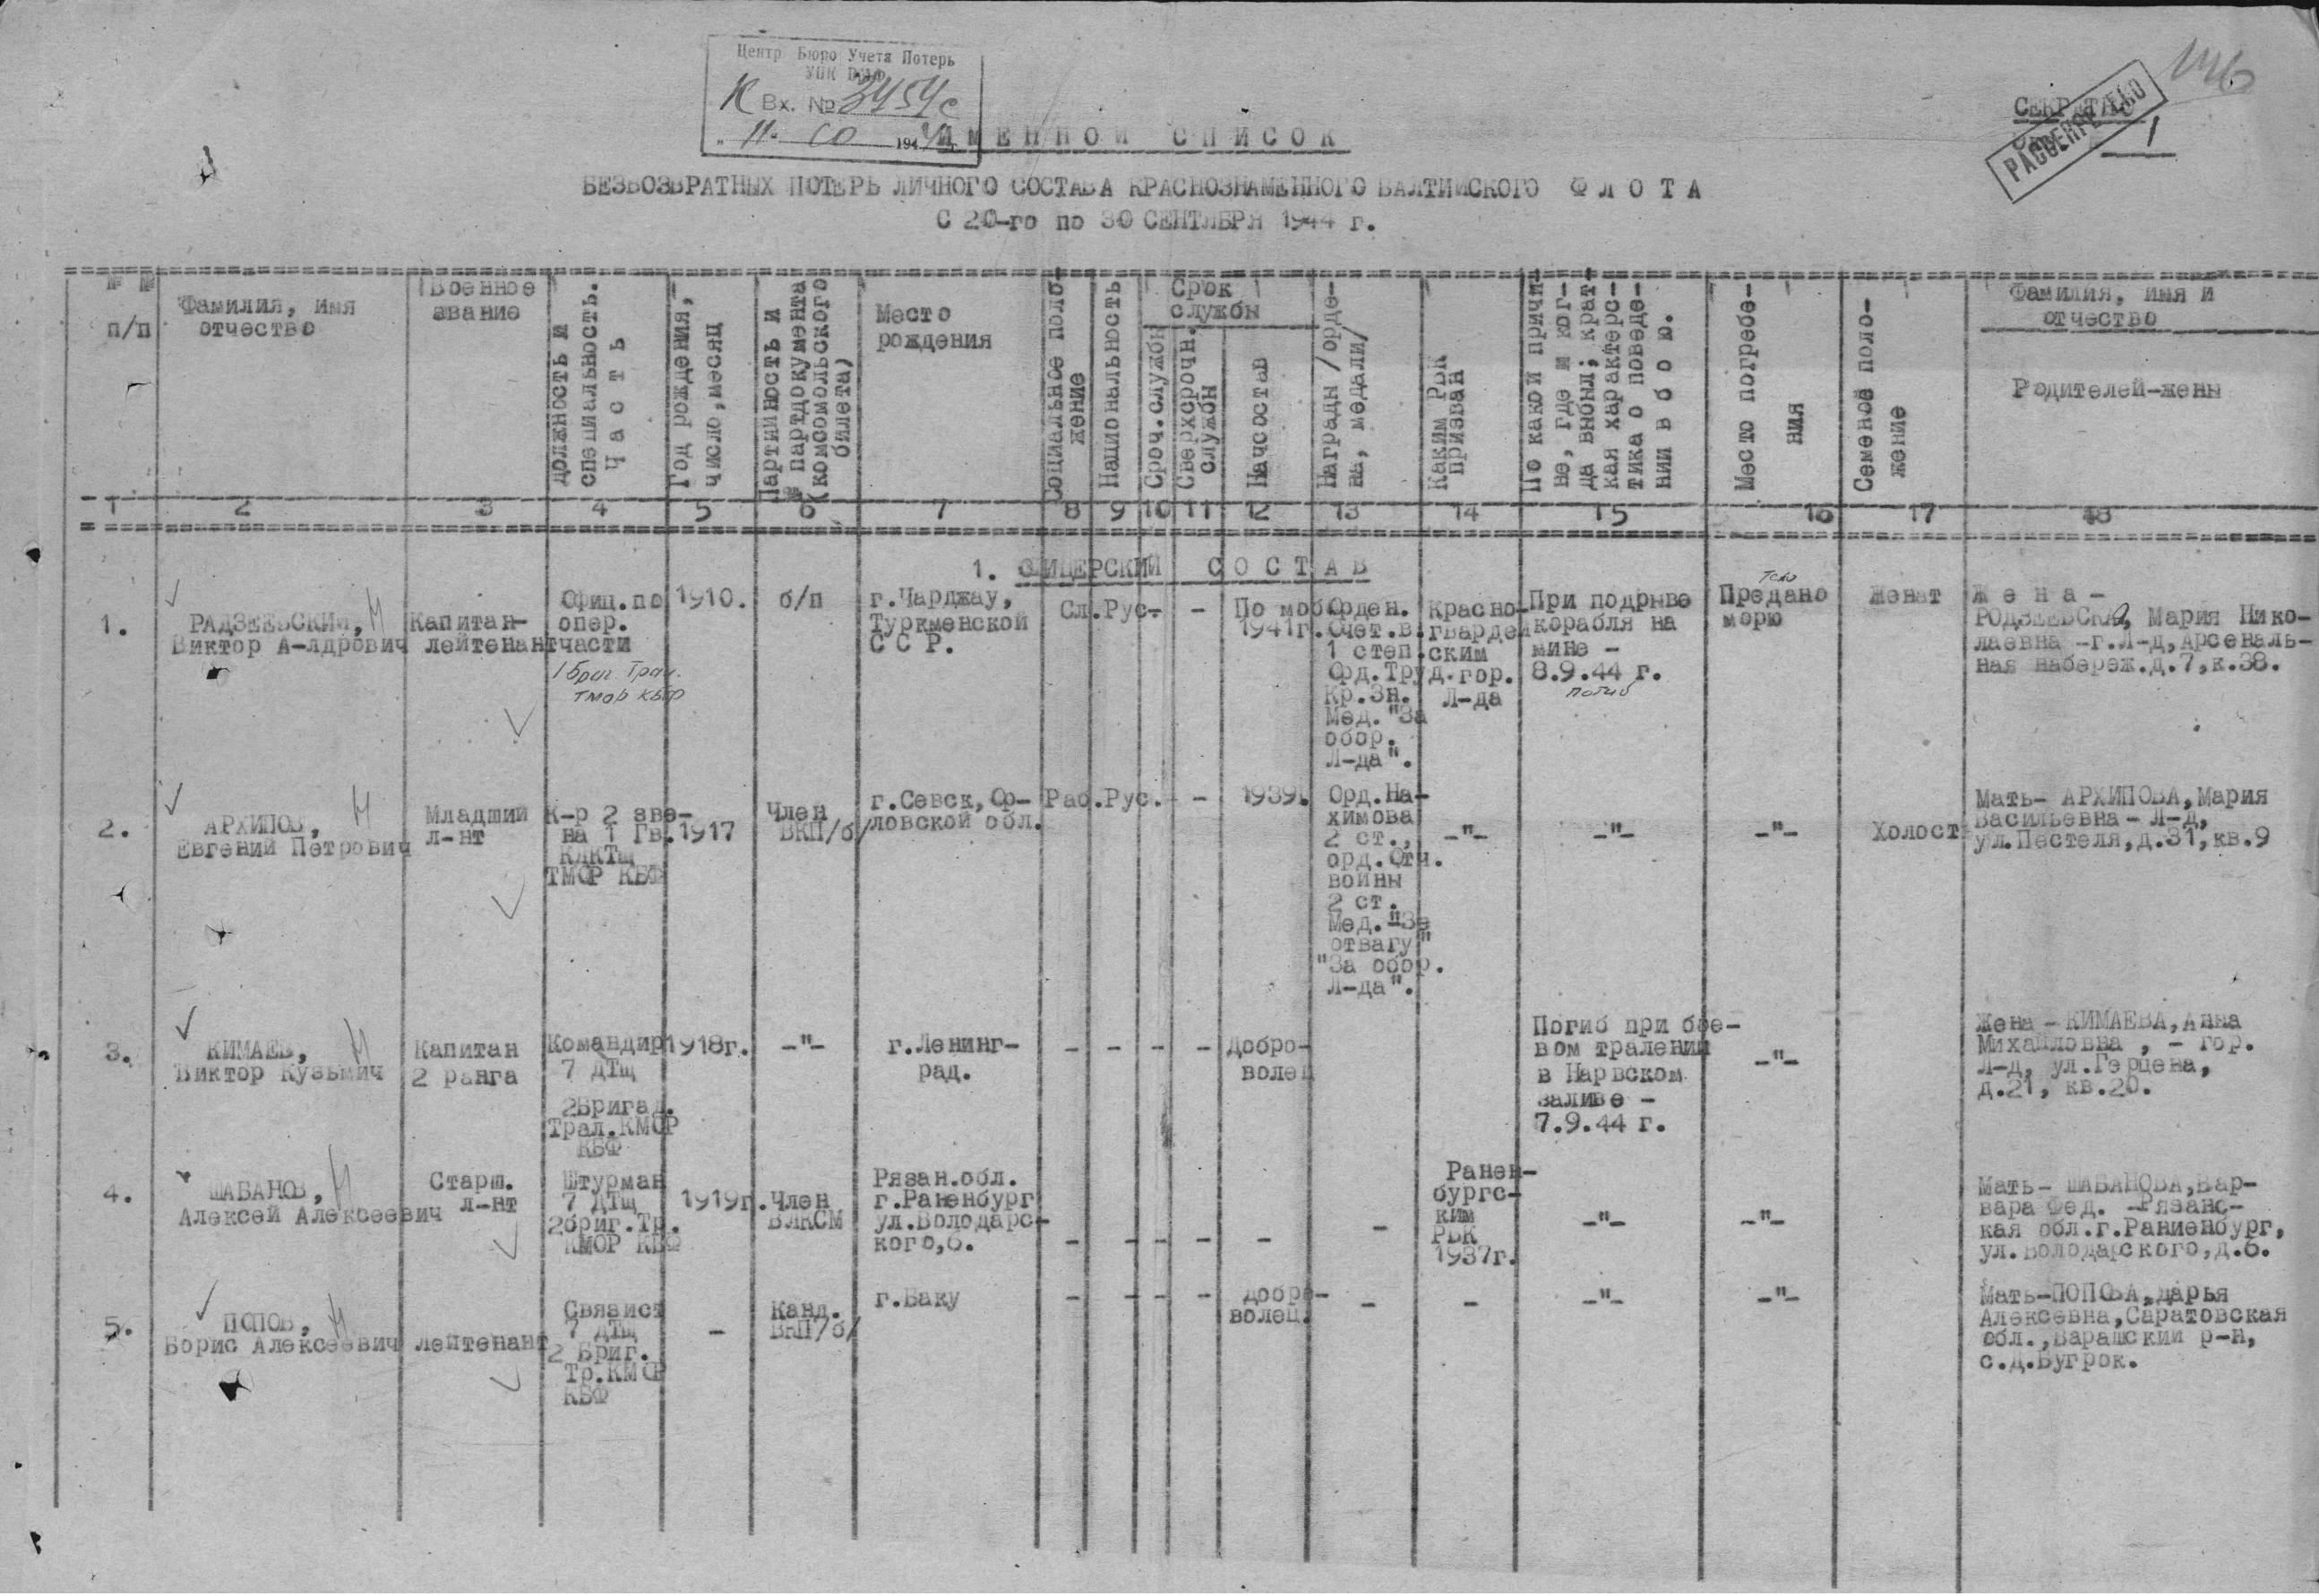 Центр Бюро Учета Потерь
Вх. № 3454с
11. 10 1944
146
СЕКРЕТНО
РАССЕКРЕЧЕНО
1
ИМЕННОЙ СПИСОК
БЕЗВОЗВРАТНЫХ ПОТЕРЬ ЛИЧНОГО СОСТАВА КРАСНОЗНАМЕННОГО БАЛТИЙСКОГО ФЛОТА
С 20-го по 30 СЕНТЯБРЯ 1944 г.
№ №
п/п
Фамилия, имя
отчество
Военное
звание
Должность и
специальность.
Часть
Год рождения,
число, месяц
Партийность и
№ партдокумента
(комсомольского
билета)
Место
рождения
Социальное поло-
жение
Национальность
Срок
службы
Сроч.службы
Сверхсрочн.
службы
Начсостав
Награды /орде-
на, медали/
Каким РВК
призван
По какой причи-
не, где и ког-
да выбыл; крат-
кая характерс-
тика о поведе-
нии в бою.
Место погребе-
ния
Семеное поло-
жение
Фамилия, имя и
отчество
Родителей-жены
1 2 3 4 5 6 7 8 9 10 11 12 13 14 15 16 17 18
1. ОФИЦЕРСКИЙ СОСТАВ
1.
РАДЗЕЕВСКИЙ,
Виктор А-лдрович
Капитан-
лейтенант
Офиц.по
опер.
части
1 бриг Трал.
ТМОР КБФ
1910.
б/п
г.Чарджау,
Туркменской
С С Р.
Сл.
Рус.
-
-
По моб
1941г.
Орден.
Отет.в.
1 степ.
Орд.Труд.
Кр.Зн.
Мед. "За
обор.
Л-да".
Красно-
гвардей
ским
гор.
Л-да
При подрыве
корабля на
мине -
8.9.44 г.
погиб
тело
Предано
морю
Женат
Ж е н а -
РОДЗЕЕВСКАЯ, Мария Нико-
лаевна -г.Л-д,Арсеналь-
ная набереж.д.7,к.38.
2.
АРХИПОВ,
Евгений Петрович
Младший
л-нт
К-р 2 зве-
на 1 Гв.
КДКТЩ
ТМОР КБФ
1917
Член
ВКП/б/
г.Севск,Ор-
ловской обл.
Раб.
Рус.
-
-
1939г.
Орд.На-
химова
2 ст.,
орд.Отч.
войны
2 ст.
Мед."За
отвагу"
"За обор.
Л-да".
-"-
-"-
-"-
Холост
Мать- АРХИПОВА,Мария
Васильевна - Л-д,
ул.Пестеля,д.31,кв.9
3.
КИМАЕВ,
Виктор Кузьмич
Капитан
2 ранга
Командир
7 ДТЩ
2Бригад.
Трал.КМОР
КБФ
1918г.
-"-
г.Ленинг-
рад.
-
-
-
-
Добро-
волец
Погиб при бое-
вом тралении
в Нарвском
заливе -
7.9.44 г.
-"-
Жена - КИМАЕВА,Анна
Михайловна , - гор.
Л-д, ул.Герцена,
д.21, кв.20.
4.
ШАБАНОВ,
Алексей Алексеевич
Старш.
л-нт
Штурман
7 ДТЩ
2бриг.Тр.
КМОР КБФ
1919г.
Член
ВЛКСМ
Рязан.обл.
г.Раненбург
ул.Володарс-
кого,6.
-
-
-
-
-
-
Ранен-
бургс-
ким
РВК
1937г.
-"-
-"-
Мать- ШАБАНОВА,Вар-
вара Фед. -Рязанс-
кая обл.г.Раниенбург,
ул.Володарского,д.6.
5.
ПОПОВ,
Борис Алексеевич
лейтенант
Связист
7 ДТЩ
2 Бриг.
Тр.КМОР
КБФ
-
Канд.
ВКП/б/
г.Баку
-
-
-
-
добро-
волец.
-
-
-"-
-"-
Мать-ПОПОВА,Дарья
Алексевна,Саратовская
обл.,Варашский р-н,
с.д.Бугрок.